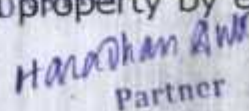 property by
Haradhan
Partner